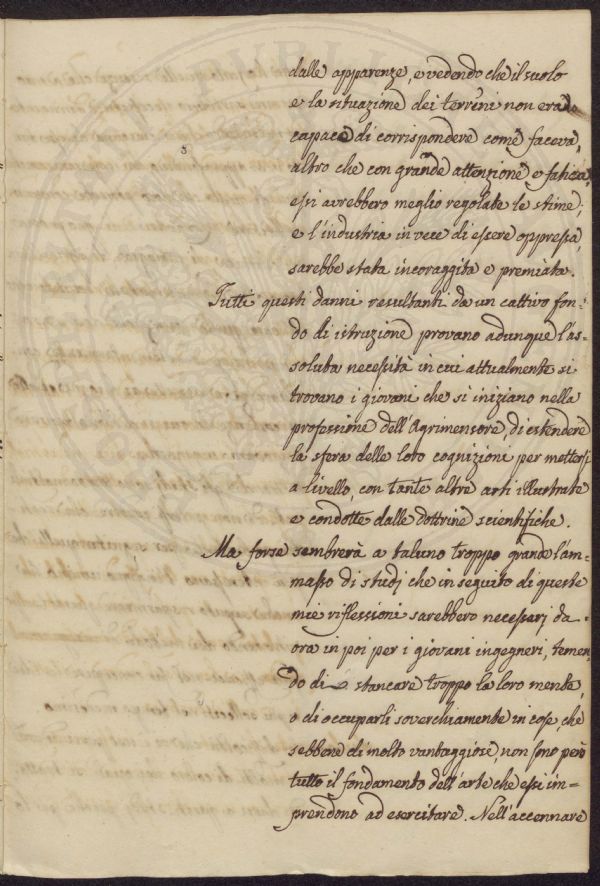 dalle apparenze, e vedendo che il suolo
e la situazione dei terreni non era
capace di corrispondere come faceva,
altro che con grande attenzione e fatica,
essi avrebbero meglio regolate le stime;
e l'industria invece di essere oppressa,
sarebbe stata incoraggita e premiata.
Tutti questi danni resultanti da un cattivo fon-
do di istruzione provano adunque l'as-
soluta necessità in cui attualmente si
trovano i giovani che si iniziano nella
professione dell'Agrimensore, di estendere
la sfera delle loro cognizioni per mettersi
a livello, con tante altre arti illustrate
e condotte dalle dottrine scientifiche.
Ma forse sembrerà a taluno troppo grande l'am-
masso di studj che in seguito di queste
mie riflessioni sarebbero necessarj da
ora in poi per i giovani ingegneri, temen-
do di stancare troppo la loro mente,
o di occuparli soverchiamente in cose, che
sebbene di molto vantaggiose, non sono però
tutto il fondamento dell'arte che essi im-
prendono ad esercitare. Nell'accennare